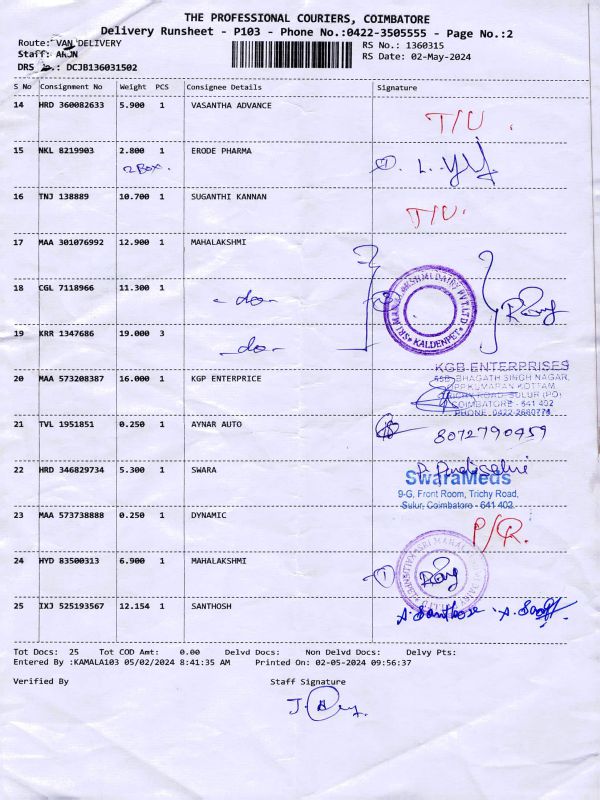 THE PROFESSIONAL COURIERS, COIMBATORE
Delivery Runsheet - P103 - Phone No.:0422-3505555 - Page No.:2
Route: VAN DELIVERY
RS No.: 1360315
Staff: ARJN
RS Date: 02-May-2024
DRS No.: DCJB136031502
S No Consignment No Weight PCS Consignee Details Signature
14 HRD 360082633 5.900 1 VASANTHA ADVANCE T/U.
15 NKL 8219903 2.800 1 ERODE PHARMA
2 Box.
16 TNJ 138889 10.700 1 SUGANTHI KANNAN T/U.
17 MAA 301076992 12.900 1 MAHALAKSHMI
18 CGL 7118966 11.300 1 -do-
SRI MAHALAKSHMI DAIRY PVT LTD KALDENPET
19 KRR 1347686 19.000 3 -do-
20 MAA 573208387 16.000 1 KGP ENTERPRICE
KGB ENTERPRISES
BHAGATH SINGH NAGAR,
KUMARAN KOTTAM
TRICHY ROAD, SULUR (PO)
COIMBATORE - 641 402
PHONE 0422-2680774
21 TVL 1951851 0.250 1 AYNAR AUTO 8072790459
22 HRD 346829734 5.300 1 SWARA
SwaraMeds
9-G, Front Room, Trichy Road,
Sulur, Coimbatore - 641 402.
23 MAA 573738888 0.250 1 DYNAMIC P/R.
24 HYD 83500313 6.900 1 MAHALAKSHMI ①
25 IXJ 525193567 12.154 1 SANTHOSH A. Santhose
Tot Docs: 25 Tot COD Amt: 0.00 Delvd Docs: Non Delvd Docs: Delvy Pts:
Entered By :KAMALA103 05/02/2024 8:41:35 AM Printed On: 02-05-2024 09:56:37
Verified By Staff Signature